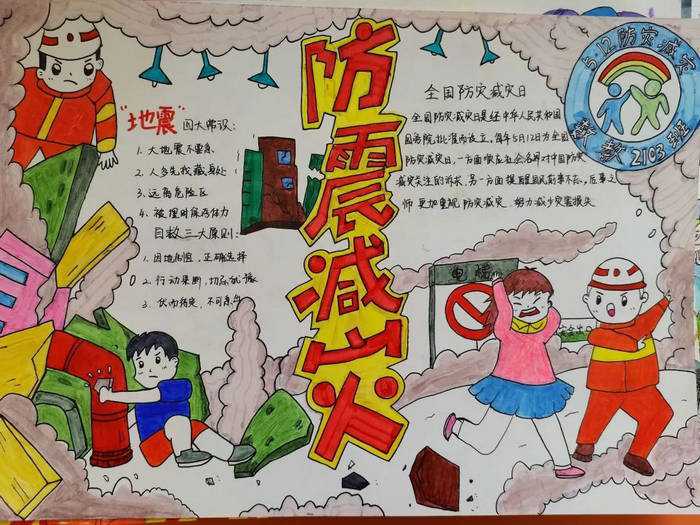 "地震"四大议:
1. 大地震不要急
2. 人多先找藏身处
3. 远离危险区
4. 被埋时保存体力
自救三大原则:
1. 因地制宜,正确选择
2. 行动果断,切忌犹豫
3. 伏而待定,不可
防震减灾
全国防灾减灾日
全国防灾减灾日是经中华人民共和国
国务院批准而设立,每年5月12日为全国
防灾减灾日,一方面顺应社会各界对中国防灾
减灾关注的诉求,另一方面提醒国民前事不忘、后事之
师 更加重视 防灾减灾,努力减少灾害损失
5.12防灾减灾
教2103班
电梯